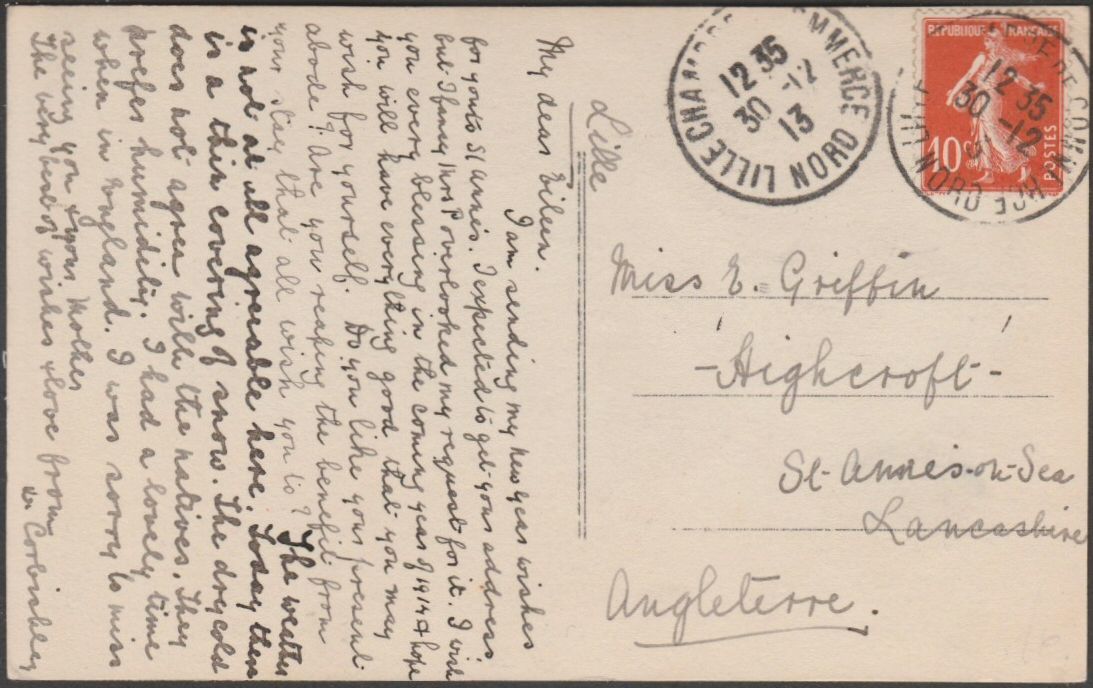 My dear Eileen.
I am sending my new year wishes
for you to St Annes. I expected to get your address
but I fancy Mrs P overlooked my request for it. I wish
you every blessing in the coming year of 1914 & hope
you will have everything good that you may
wish for yourself. Do you like your present
abode? Are you reaping the benefit from
your stay that all wish you to? The weather
is not at all agreeable here. Today there
is a thin covering of snow. The dry cold
does not agree with the natives. They
prefer humidity. I had a lovely time
when in England. I was sorry to miss
seeing you & your Mother
The very best of wishes & love from
Corbishley
Lille
LILLE CHAMBRE COMMERCE NORD
12 35
30 -12
13
REPUBLIQUE FRANCAISE
10 c
POSTES
12 35
30 -12
LILLE DE COMMERCE NORD
Miss E. Griffin
- Highcroft -
St-Annes-on-Sea
Lancashire
Angleterre.